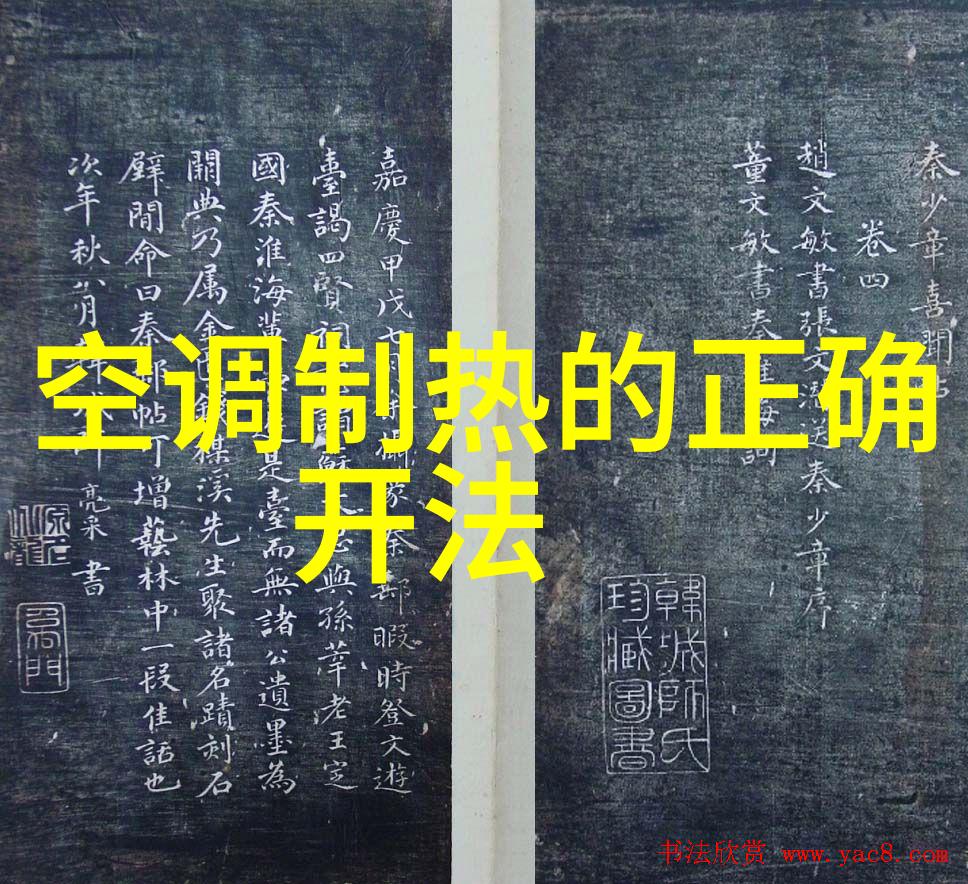 秦少章喜聞帖
卷四
趙文敏書張文潛送秦少章序
董文敏書秦淮海詞
嘉慶甲戌七月
臺謁四賢祠
國秦淮海
關典乃属金
群聞命曰秦郵帖可增藝林中一段佳話也
次年秋八月
亮采書
溪先生聚諸名蹟刻石
是臺而無諸公遺墨為
與孫莘老王定
秦郵暇時登文遊
韓城師氏
珍藏圖書
空调制热的正确
开法
书法欣赏 www.yac8.com